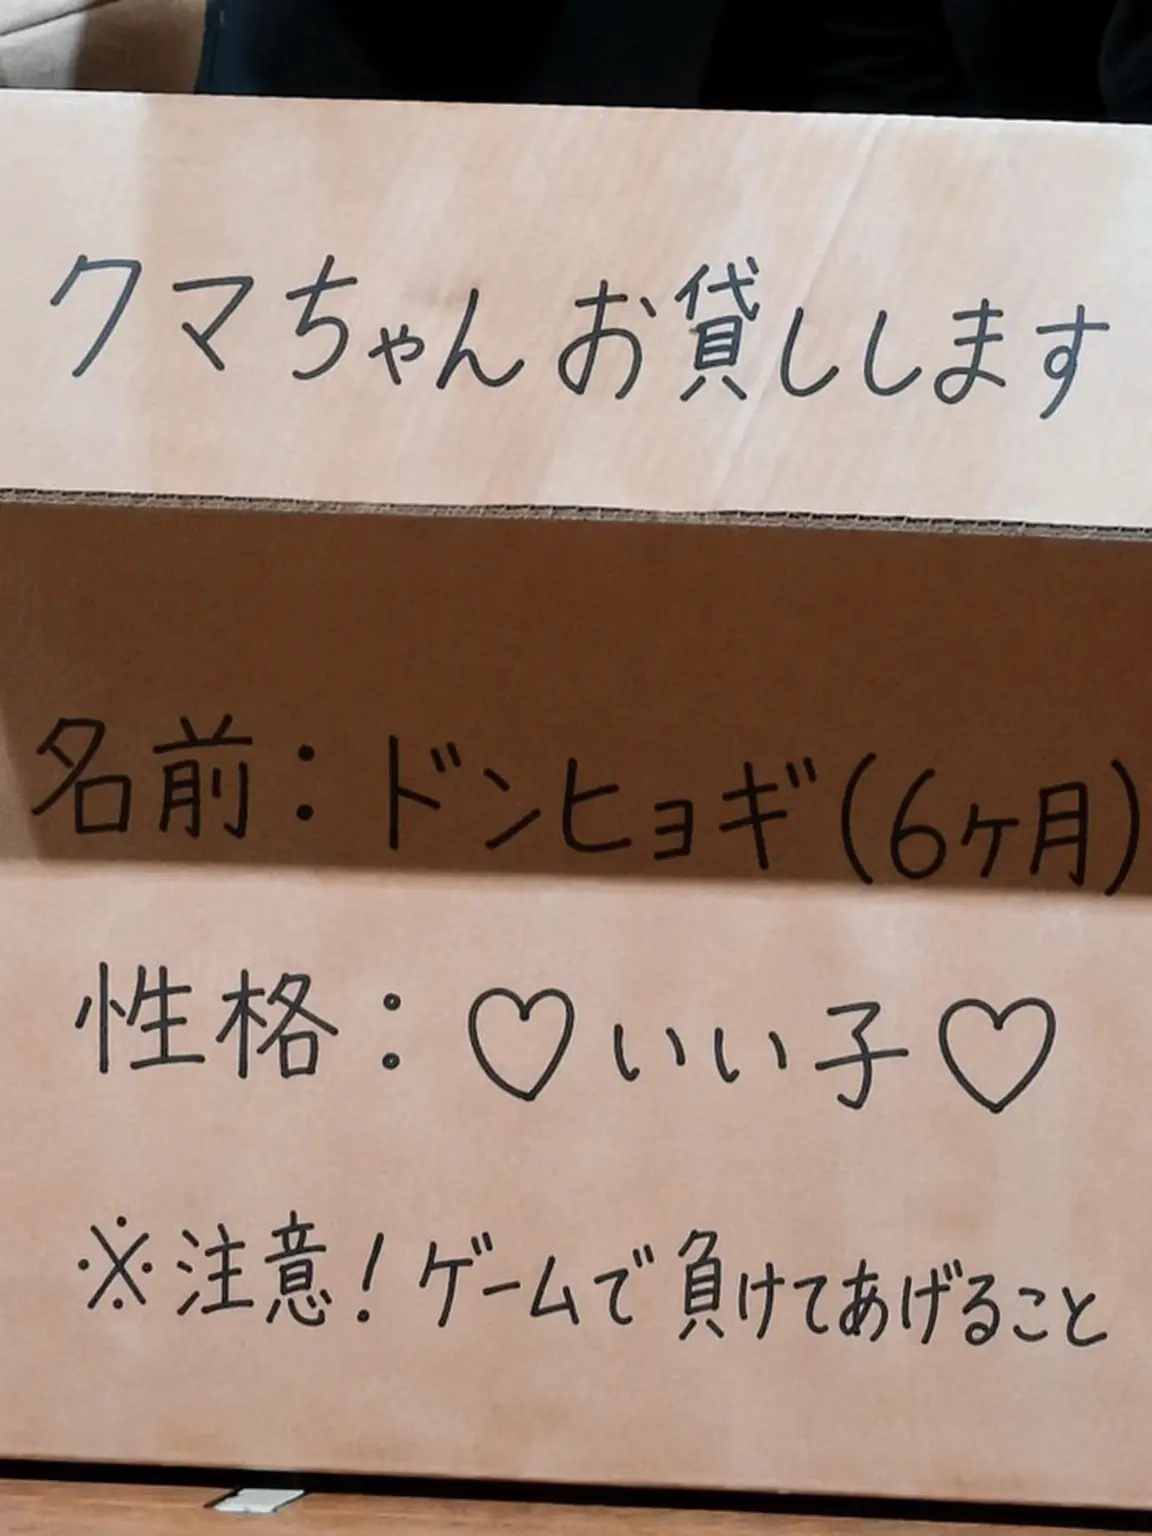 クマちゃんお貸しします
名前：ドンヒョギ(6ヶ月)
性格：♡いい子♡
※注意！ゲームで負けてあげること